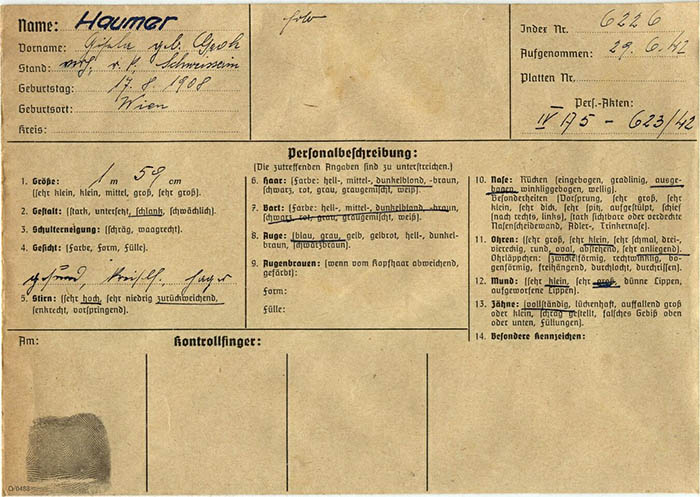 Name: Haumer
Vorname: Gisela geb. Groh
Stand: verh. r. k. Schweisserin
Geburtstag: 17. 8. 1908
Geburtsort: Wien
Kreis:
Index Nr. 6226
Aufgenommen: 29. 6. 42
Platten Nr.
Pers.-Akten:
IV A5 - 623/42
Personalbeschreibung:
(Die zutreffenden Angaben sind zu unterstreichen.)
1. Größe: 1 m 59 cm
(sehr klein, klein, mittel, groß, sehr groß).
2. Gestalt: (stark, untersetzt, schlank, schwächlich).
3. Schulterneigung: (schräg, waagrecht).
4. Gesicht: (Farbe, Form, Fülle).
gesund, hager
5. Stirn: (sehr hoch, sehr niedrig zurückweichend,
senkrecht, vorspringend).
6. Haar: (Farbe: hell-, mittel-, dunkelblond, -braun,
schwarz, rot, grau, graugemischt, weiß).
7. Bart: (Farbe: hell-, mittel-, dunkelblond -braun,
schwarz, rot, grau, graugemischt, weiß).
8. Auge: (blau, grau, gelb, gelbrot, hell-, dunkel-
braun, schwarzbraun).
9. Augenbrauen: (wenn vom Kopfhaar abweichend,
gefärbt):
Form:
Fülle:
10. Nase: Rücken (eingebogen, gradlinig, ausge-
bogen, winkliggebogen, wellig).
Besonderheiten (Vorsprung, sehr groß, sehr
klein, sehr dick, sehr spitz, aufgestülpt, schief
(nach rechts, links), stark sichtbare oder verdeckte
Nasenscheidewand, Adler-, Trinkernase).
11. Ohren: (sehr groß, sehr klein, sehr schmal, drei-
viereckig, rund, oval, abstehend, sehr anliegend).
Ohrläppchen: (zwickelförmig, rechtwinklig, bo-
genförmig, freihängend, durchlocht, durchrissen).
12. Mund: (sehr klein, sehr groß, dünne Lippen,
aufgeworfene Lippen).
13. Zähne: (vollständig, lückenhaft, auffallend groß
oder klein, schräg gestellt, falsches Gebiß oben
oder unten, Füllungen).
14. Besondere Kennzeichen:
Am:
Kontrollfinger: